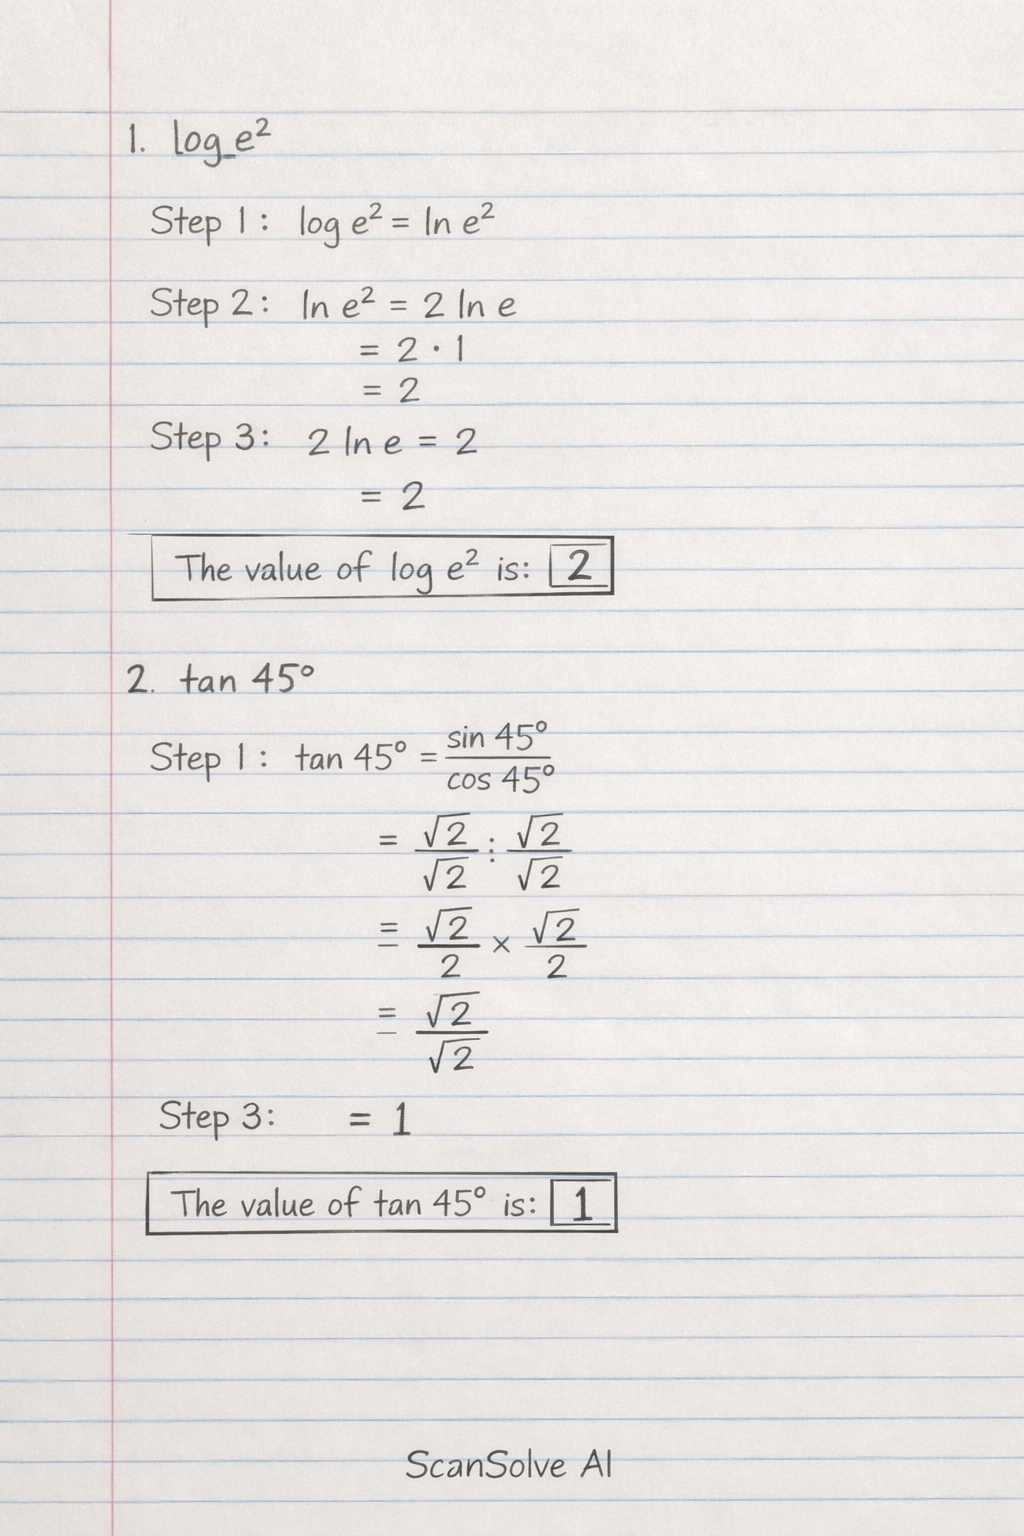 1. log_e²
Step 1: log e² = ln e²
Step 2: ln e² = 2 ln e
= 2 · 1
= 2
Step 3: 2 ln e = 2
= 2
The value of log e² is: 2
2. tan 45°
Step 1: tan 45° = sin 45° / cos 45°
= √2/√2 : √2/√2
= √2/2 × √2/2
= √2/√2
Step 3: = 1
The value of tan 45° is: 1
ScanSolve AI